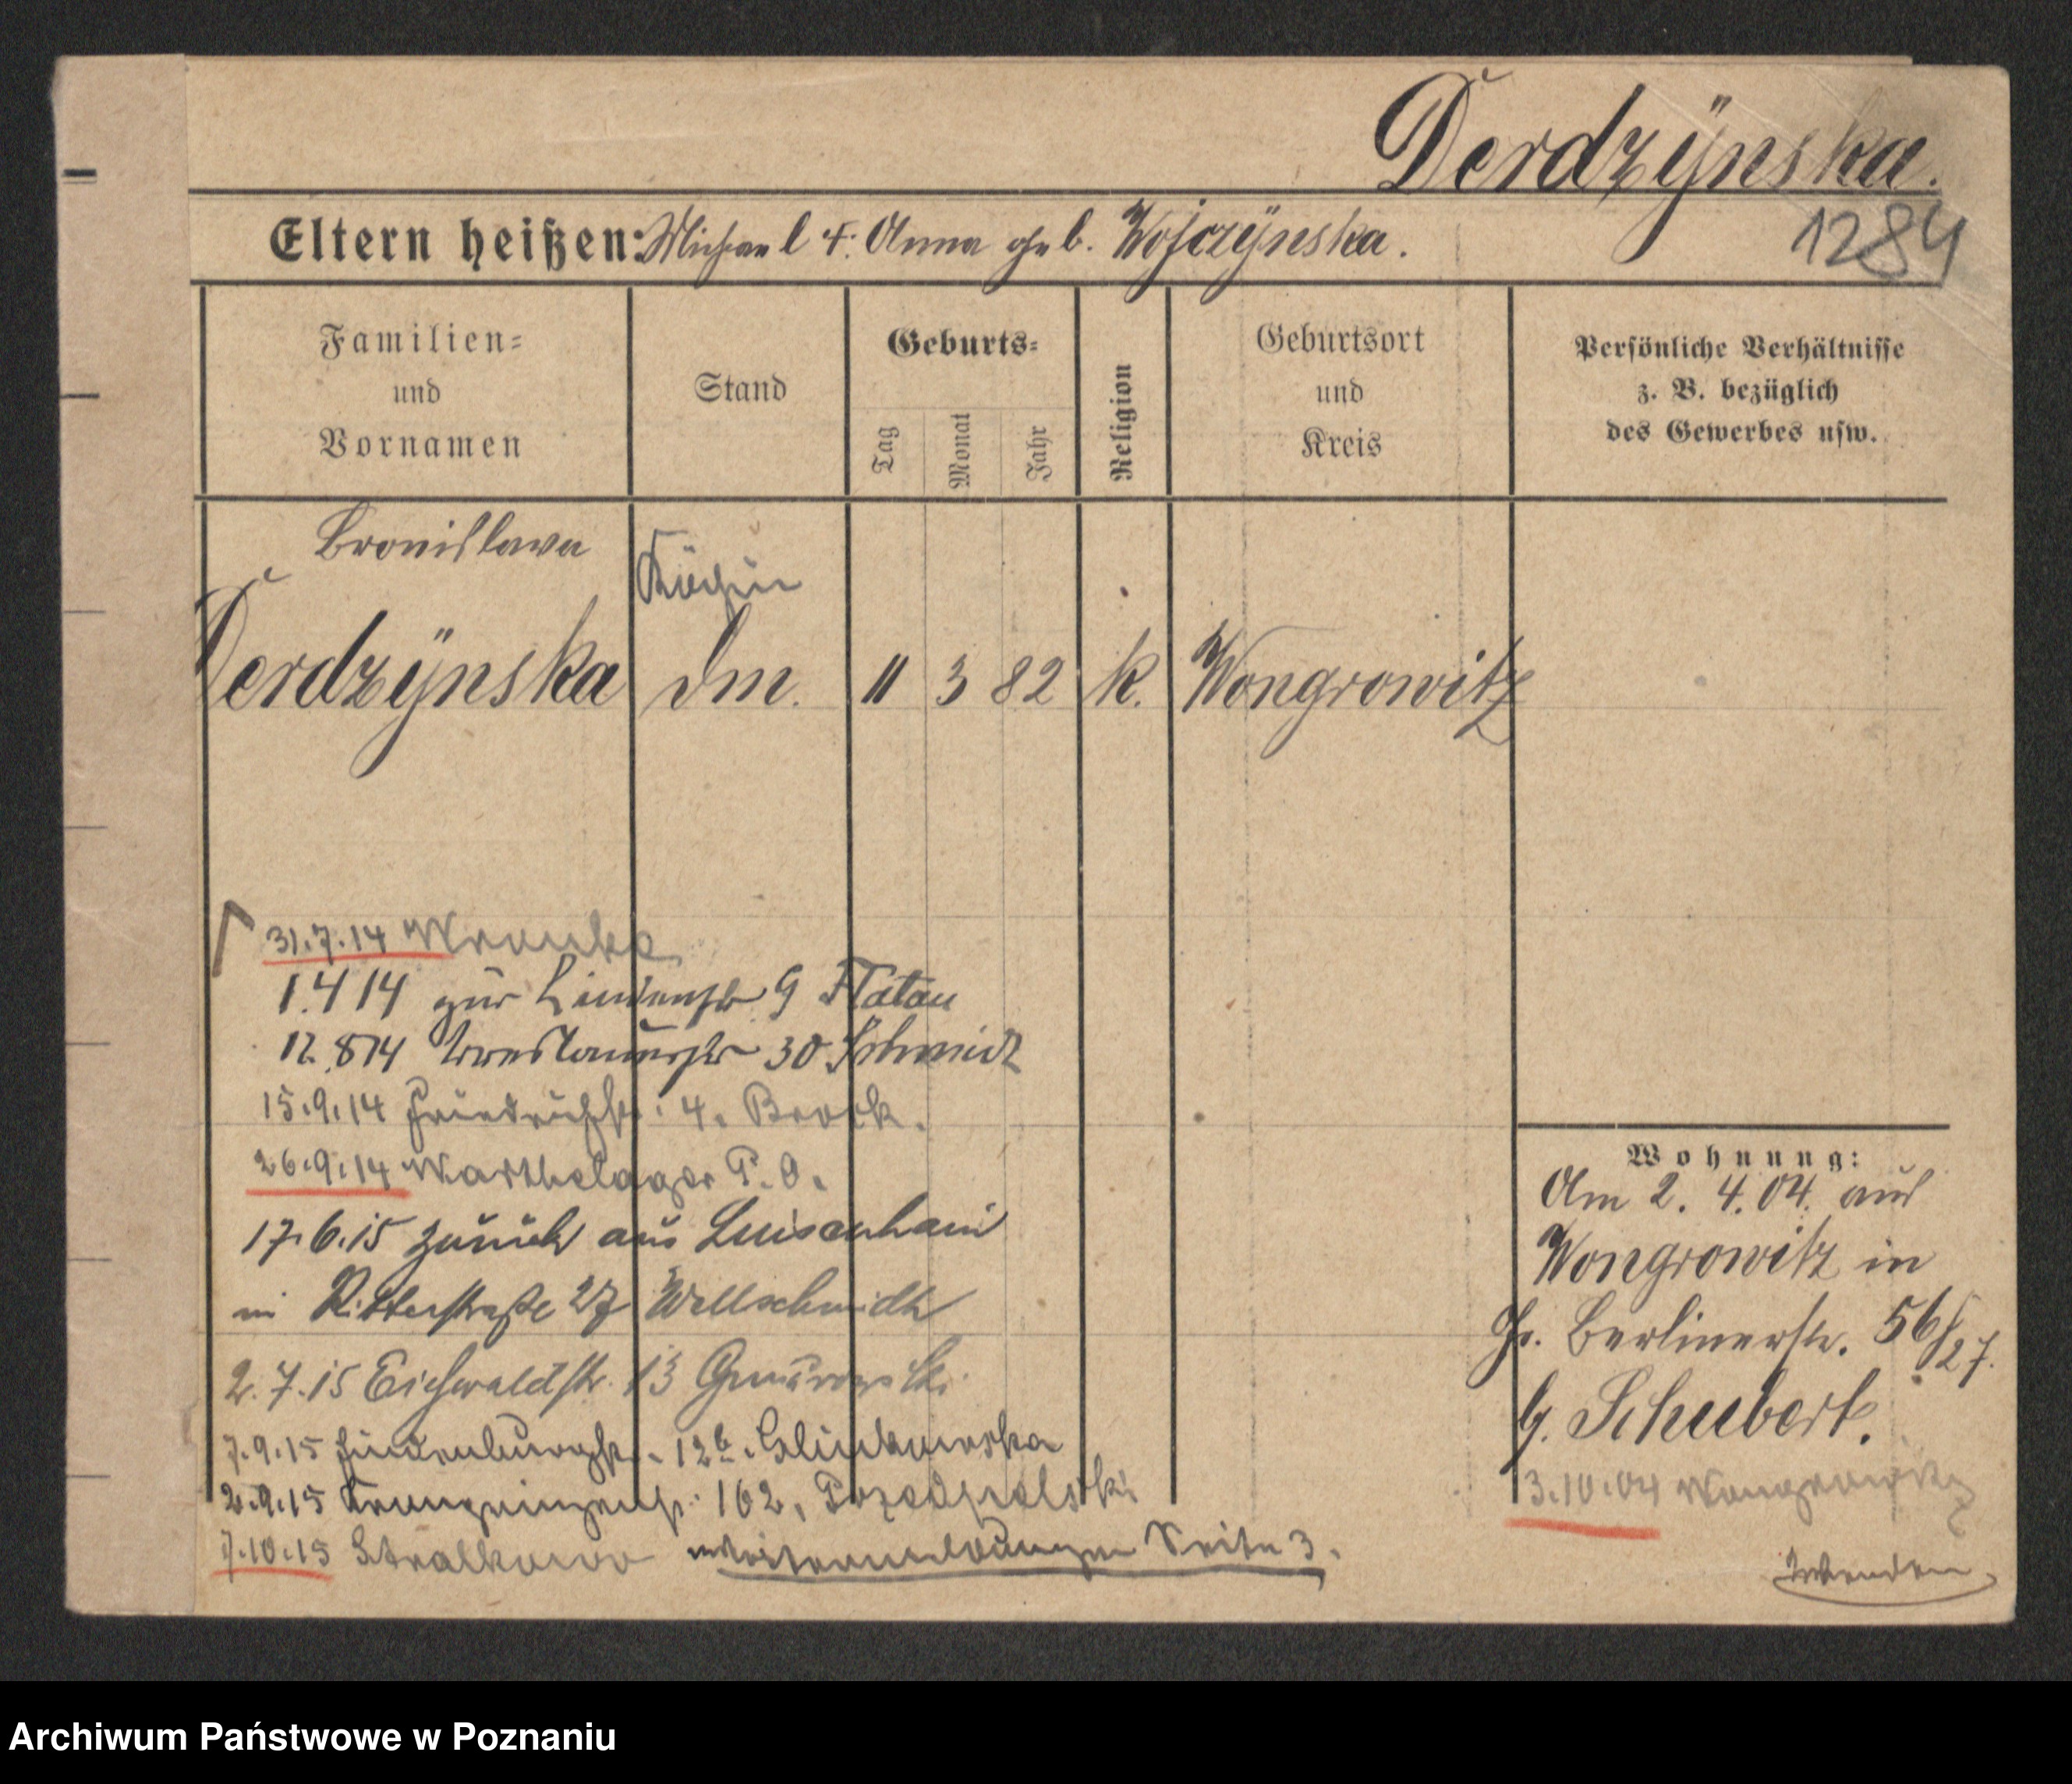 Derdzÿnska.
1284
Eltern heißen: Michael u. Anna geb. Wojczÿnska.
Familien-
und
Vornamen
Stand
Geburts-
Tag
Monat
Jahr
Religion
Geburtsort
und
Kreis
Persönliche Verhältnisse
z. B. bezüglich
des Gewerbes usw.
Bronislawa
Köchin
Derdzÿnska
11 3 82 k. Wongrowitz
31.7.14 Wronke
1.4 14 zur Lindenstr 9 Flatau
12.8 14 Breslauerstr 30 Schmidt
15.9.14 Friedrichstr. 4. Brock.
26.9.14 Warthelager P. O.
17.6.15 zurück aus Luisenhain
in Ritterstraße 27 Wellschmidt
2.7.15 Eichwaldstr. 13
7.9.15 12b.
2.9.15 Kronprinzenstr. 162,
7.10.15 Stralkowo Seite 3.
Wohnung:
Am 2. 4. 04. aus
Wongrowitz in
Gr. Berlinerstr. 56/27.
b. Schubert.
3.10.04 Wongrowitz
Wenden
Archiwum Państwowe w Poznaniu